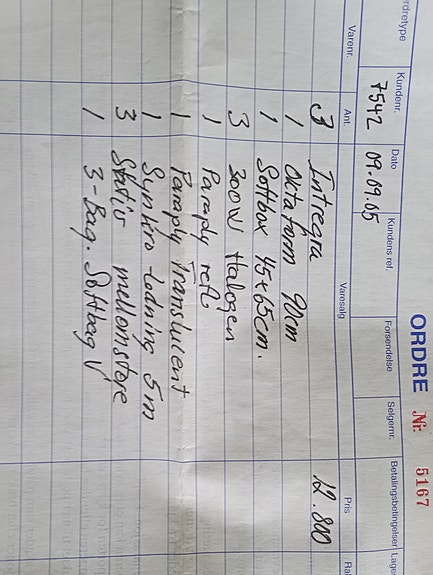 ORDRE Nr. 5167
rdretype Kundenr. Dato Kundens ref. Forsendelse Selgernr. Betalingsbetingelser Lage
7542 09.09.05
Varenr. Ant. Varesalg Pris Ra
3 Integra 12.800
1 Okta form 90cm
1 Softbox 45x65cm.
3 300W Halogen
1 Paraply refl.
1 Paraply Translucent
1 Synkro-ledning 5m
3 Stativ mellomstore
1 3-Bag. Softbag